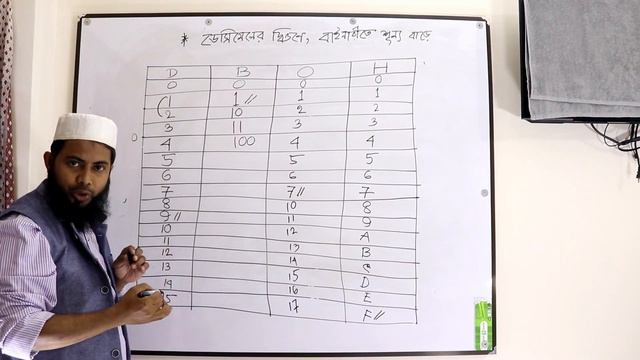 * ডেসিমেলের দ্বিগুনে, বাইনারীতে শূন্য বাড়ে
D B O H
0 0 0 0
1 1 1 1
2 10 2 2
3 11 3 3
4 100 4 4
5 5 5
6 6 6
7 7 7
8 10 8
9 11 9
10 12 A
11 13 B
12 14 C
13 15 D
14 16 E
15 17 F